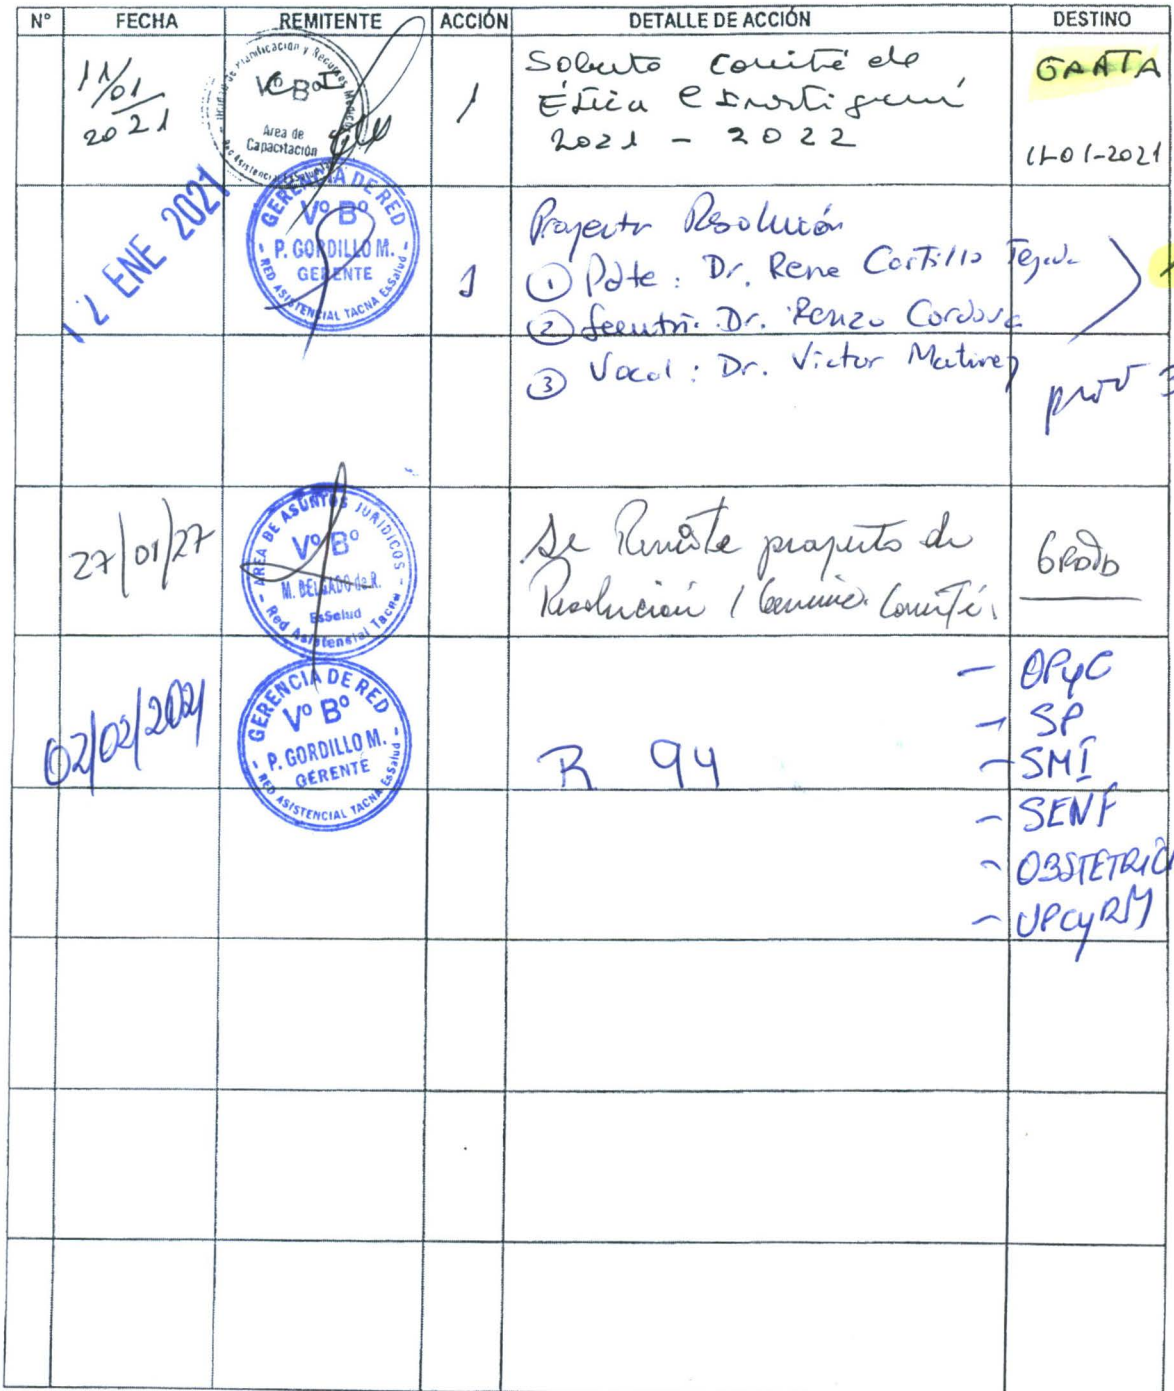 N° FECHA REMITENTE ACCIÓN DETALLE DE ACCIÓN DESTINO
11/01
2021
Planificación y Recursos
V° B°
Area de
Capacitación
1
comité de
Ética e
2021 - 2022
GRATA
11-01-2021
12 ENE 2021
GERENCIA DE RED
V° B°
P. GORDILLO M.
GERENTE
RED ASISTENCIAL TACNA EsSalud
1
Resolución
① Pdte: Dr. Rene Castillo
② Dr. Renzo Cordova
③ Vocal: Dr. Victor
27/01/27
AREA DE ASUNTOS JURIDICOS
V° B°
M. DELGADO de R.
EsSalud
Red Asistencial Tacna
Se Remite proyecto de
Resolución /
02/02/2021
GERENCIA DE RED
V° B°
P. GORDILLO M.
GERENTE
RED ASISTENCIAL TACNA EsSalud
R 94
- OPyC
- SP
- SMI
- SENF
- OBSTETRIC
- UPCyRM